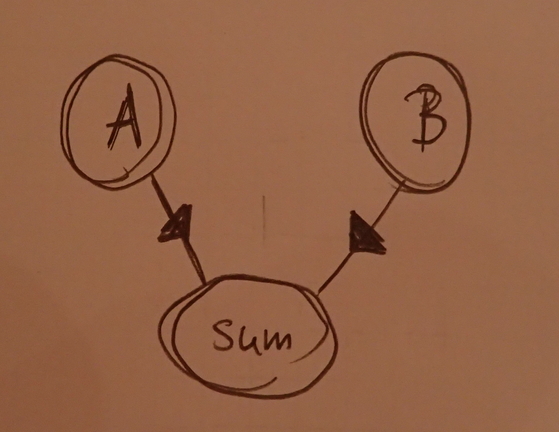 A
B
Sum